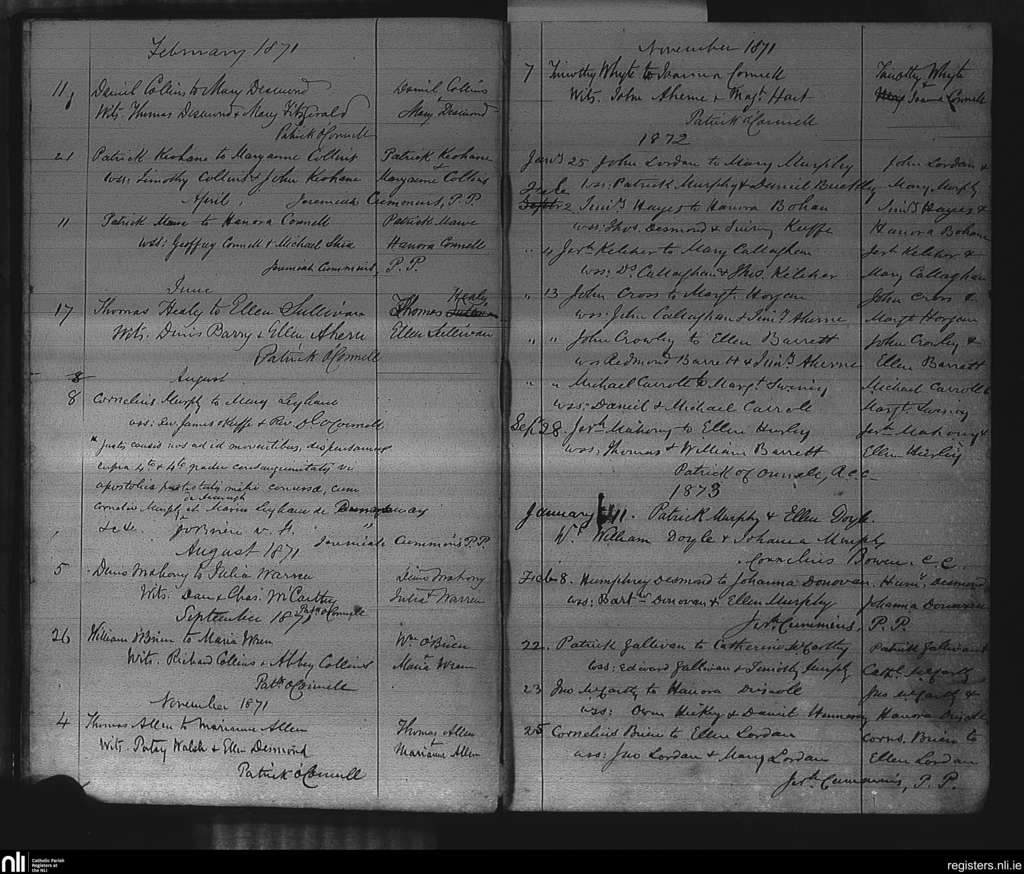 February 1871
11 Daniel Collins to Mary Desmond Daniel Collins
Wits. Thomas Desmond & Mary FitzGerald Mary Desmond
Patrick O'Connell
21 Patrick Keohane to Maryanne Collins Patrick Keohane
wss: Timothy Collins & John Keohane & Maryanne Collins
April, Jeremiah Cummins, P.P.
11 Patrick Mawe to Hanora Connell Patrick Mawe
wss: Geoffrey Connell & Michael Shea Hanora Connell
Jeremiah Cummins, P.P.
June
17 Thomas Healy to Ellen Sullivan Thomas Healy
Wits. Denis Barry & Ellen Ahern Ellen Sullivan
Patrick O'Connell
8 August
8 Cornelius Murphy to Mary Leyhane
wss: Rev. James O'Keeffe & Rev. D. O'Connell
justis causis nos ad id moventibus, dispensamus
supra 4o & 4o gradu consanguinitatis vi
apostolica potestatis mihi concessa, cum
Cornelio Murphy et Maria Leyhane de
&c &c. J O'Brien v. f.
Jeremiah Cummins P.P.
August 1871
5 Denis Mahony to Julia Warren Denis Mahony
Wits: Dan & Chas. McCarthy Julia Warren
Patk O'Connell
September 1871
26 William O'Brien to Maria Wren Wm O'Brien
Wits. Richard Collins & Abbey Collins Maria Wren
Patk O'Connell
November 1871
4 Thomas Allen to Marianne Allen Thomas Allen
Wits. Patsy Walsh & Ellen Desmond & Marianne Allen
Patrick O'Connell
November 1871
7 Timothy Whyte to Joanna Connell Timothy Whyte
Wits. John Aherne & Magt. Hart & Joanna Connell
Patrick O'Connell
1872
Jany 25 John Lordan to Mary Murphy John Lordan &
wss: Patrick Murphy & Daniel Buckley Mary Murphy
Feb 2 Timy Hayes to Hanora Bohan Timy Hayes &
wss: Thos. Desmond & Keeffe Hanora Bohane
" 4 Jerh Keleher to Mary Callaghan Jerh Keleher &
wss: Dl Callaghan & Thos. Keleher Mary Callaghan
" 13 John Cross to Margt. Horgan John Cross &
wss: John Callaghan & Timy Aherne Margt Horgan
" " John Crowley to Ellen Barrett John Crowley &
wss Redmond Barrett & Timy Aherne Ellen Barrett
" " Michael Carroll to Margt Twenig Michael Carroll &
wss: Daniel & Michael Carroll Margt Twenig
Sep 28. Jerh Mahony to Ellen Hurley Jerh Mahony &
wss: Thomas & William Barrett Ellen Hurley
Patrick A.C.C.
1873
January 11. Patrick Murphy & Ellen Doyle.
Ws William Doyle & Johanna Murphy
Cornelius Bowen. C.C.
Feb 8. Humphrey Desmond to Johanna Donovan Humy. Desmond
wss: Bartw Donovan & Ellen Murphy Johanna Donovan
Jerh Cummins, P.P.
22. Patrick Gallivan to Catherine McCarthy Patrick Gallivan &
wss: Edward Gallivan & Timothy Murphy Cath. McCarthy
23 Jno McCarthy to Hanora Driscoll Jno McCarthy &
wss: Owen Hickey & Daniel Hennessy Hanora Driscoll
25 Cornelius Brien to Ellen Lordan Corns. Brien to
wss: Jno Lordan & Mary Lordan Ellen Lordan
Jerh Cummins, P.P.
nli Catholic Parish
Registers at
the NLI
registers.nli.ie